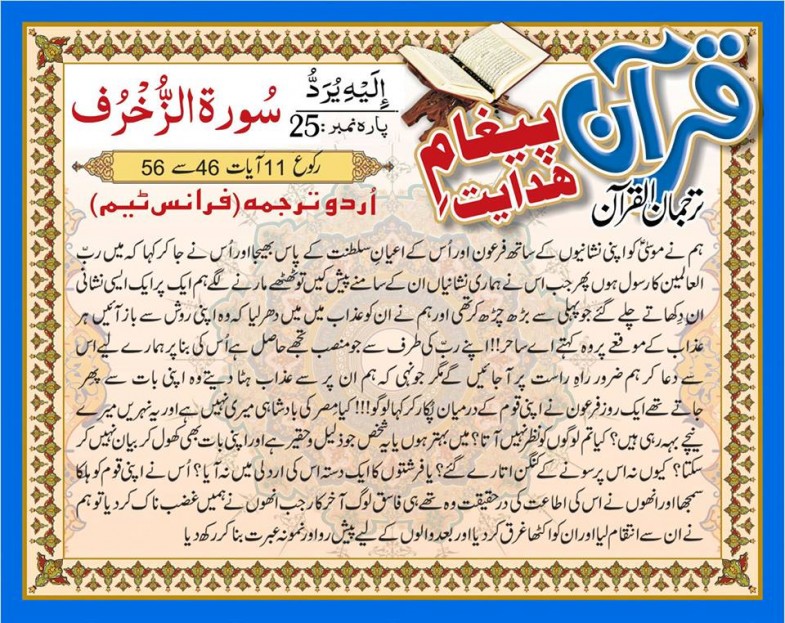 قرآن
پیغامِ
ھدایت
ترجمان القرآن
إِلَيْهِ يُرَدُّ
پارہ نمبر:25
سُورة الزُّخْرُف
رکوع 11 آیات 46 سے 56
اُردو ترجمہ (فرانس ٹیم)
ہم نے موسیٰؑ کو اپنی نشانیوں کے ساتھ فرعون اور اُس کے اعیانِ سلطنت کے پاس بھیجا اور اُس نے جا کر کہا کہ میں ربّ
العالمین کا رسول ہوں پھر جب اس نے ہماری نشانیاں ان کے سامنے پیش کیں تو ٹھٹھے مارنے لگے ہم ایک پر ایک ایسی نشانی
ان دِکھاتے چلے گئے جو پہلی سے بڑھ چڑھ کر تھی اور ہم نے ان کو عذاب میں میں دھر لیا کہ وہ اپنی روش سے باز آئیں ہر
عذاب کے موقعے پر وہ کہتے اے ساحر!! اپنے ربّ کی طرف سے جو منصب تجھے حاصل ہے اُس کی بنا پر ہمارے لیے اس
سے دعا کر ہم ضرور راہِ راست پر آجائیں گے مگر جونہی کہ ہم ان پر سے عذاب ہٹا دیتے وہ اپنی بات سے پھر
جاتے تھے ایک روز فرعون نے اپنی قوم کے درمیان پُکار کر کہا لوگو!!! کیا مصر کی بادشاہی میری نہیں ہے اور یہ نہریں میرے
نیچے بہہ رہی ہیں؟ کیا تم لوگوں کو نظر نہیں آتا؟ میں بہتر ہوں یا یہ شخص جو ذلیل و حقیر ہے اور اپنی بات بھی کھُول کر بیان نہیں کر
سکتا؟ کیوں نہ اس پر سونے کے کنگن اتارے گئے؟ یا فرشتوں کا ایک دستہ اس کی اردلی میں نہ آیا؟ اُس نے اپنی قوم کو ہلکا
سمجھا اور انھوں نے اس کی اطاعت کی درحقیقت وہ تھے ہی فاسق لوگ آخر کار جب انھوں نے ہمیں غضب ناک کر دیا تو ہم
نے ان سے انتقام لیا اور ان کو اکٹھا غرق کر دیا اور بعد والوں کے لیے پیش رو اور نمونہ عبرت بنا کر رکھ دیا